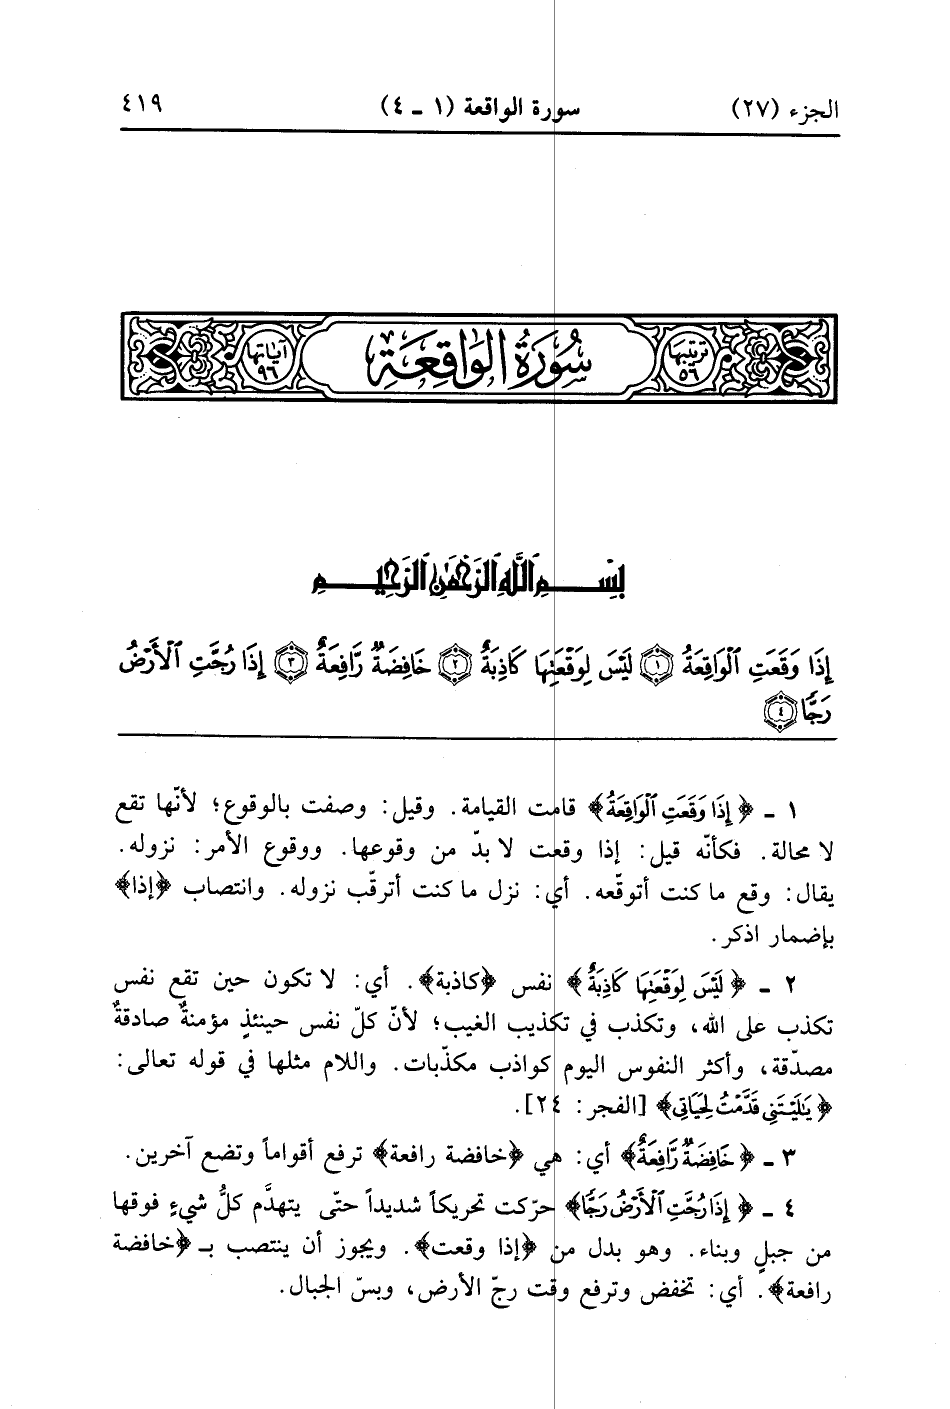 الجزء (٢٧)
سورة الواقعة (١ ـ ٤)
٤١٩
ترتيبها ٥٦
سُورَةُ الوَاقِعَة
آياتها ٩٦
بِسْمِ ٱللَّهِ ٱلرَّحْمَٰنِ ٱلرَّحِيمِ
إِذَا وَقَعَتِ ٱلْوَاقِعَةُ ١ لَيْسَ لِوَقْعَتِهَا كَاذِبَةٌ ٢ خَافِضَةٌ رَّافِعَةٌ ٣ إِذَا رُجَّتِ ٱلْأَرْضُ
رَجًّا ٤
١ ـ ﴿إِذَا وَقَعَتِ ٱلْوَاقِعَةُ﴾ قامت القيامة. وقيل: وصفت بالوقوع؛ لأنّها تقع
لا محالة. فكأنّه قيل: إذا وقعت لا بدّ من وقوعها. ووقوع الأمر: نزوله.
يقال: وقع ما كنت أتوقّعه. أي: نزل ما كنت أترقّب نزوله. وانتصاب ﴿إذا﴾
بإضمار اذكر.
٢ ـ ﴿لَيْسَ لِوَقْعَتِهَا كَاذِبَةٌ﴾ نفس ﴿كاذبة﴾. أي: لا تكون حين تقع نفس
تكذب على الله، وتكذب في تكذيب الغيب؛ لأنّ كلّ نفس حينئذٍ مؤمنةٌ صادقةٌ
مصدّقة، وأكثر النفوس اليوم كواذب مكذّبات. واللام مثلها في قوله تعالى:
﴿يَٰلَيْتَنِى قَدَّمْتُ لِحَيَاتِى﴾ [الفجر: ٢٤].
٣ ـ ﴿خَافِضَةٌ رَّافِعَةٌ﴾ أي: هي ﴿خافضة رافعة﴾ ترفع أقواماً وتضع آخرين.
٤ ـ ﴿إِذَا رُجَّتِ ٱلْأَرْضُ رَجًّا﴾ حرّكت تحريكاً شديداً حتّى يتهدَّم كلُّ شيءٍ فوقها
من جبلٍ وبناء. وهو بدل من ﴿إذا وقعت﴾. ويجوز أن ينتصب بـ ﴿خافضة
رافعة﴾. أي: تخفض وترفع وقت رجّ الأرض، وبسّ الجبال.